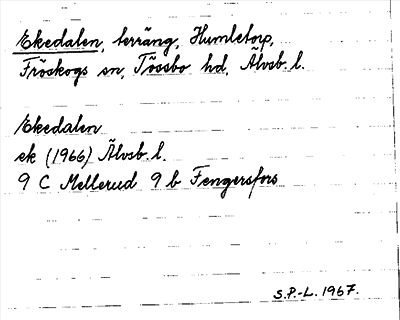 Ekedalen, terräng, Humletorp,
Fröskogs sn, Tössbo hd, Älvsb. l.
Ekedalen
ek (1966) Älvsb. l.
9 C Mellerud 9 b Fengersfors
S.P.-L. 1967.